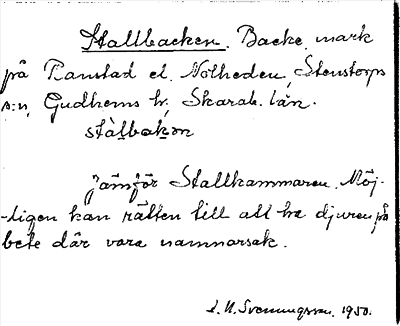 Stallbacken. Backe, mark
på Ramstad el. Nolheden, Stenstorps
s:n, Gudhems hr, Skarab. län.
stàlbakən
Jämför Stallkammaren. Möj-
-ligen kan rätten till att ha djuren på
bete där vara namnorsak.
S. U. Svenungsson. 1950.